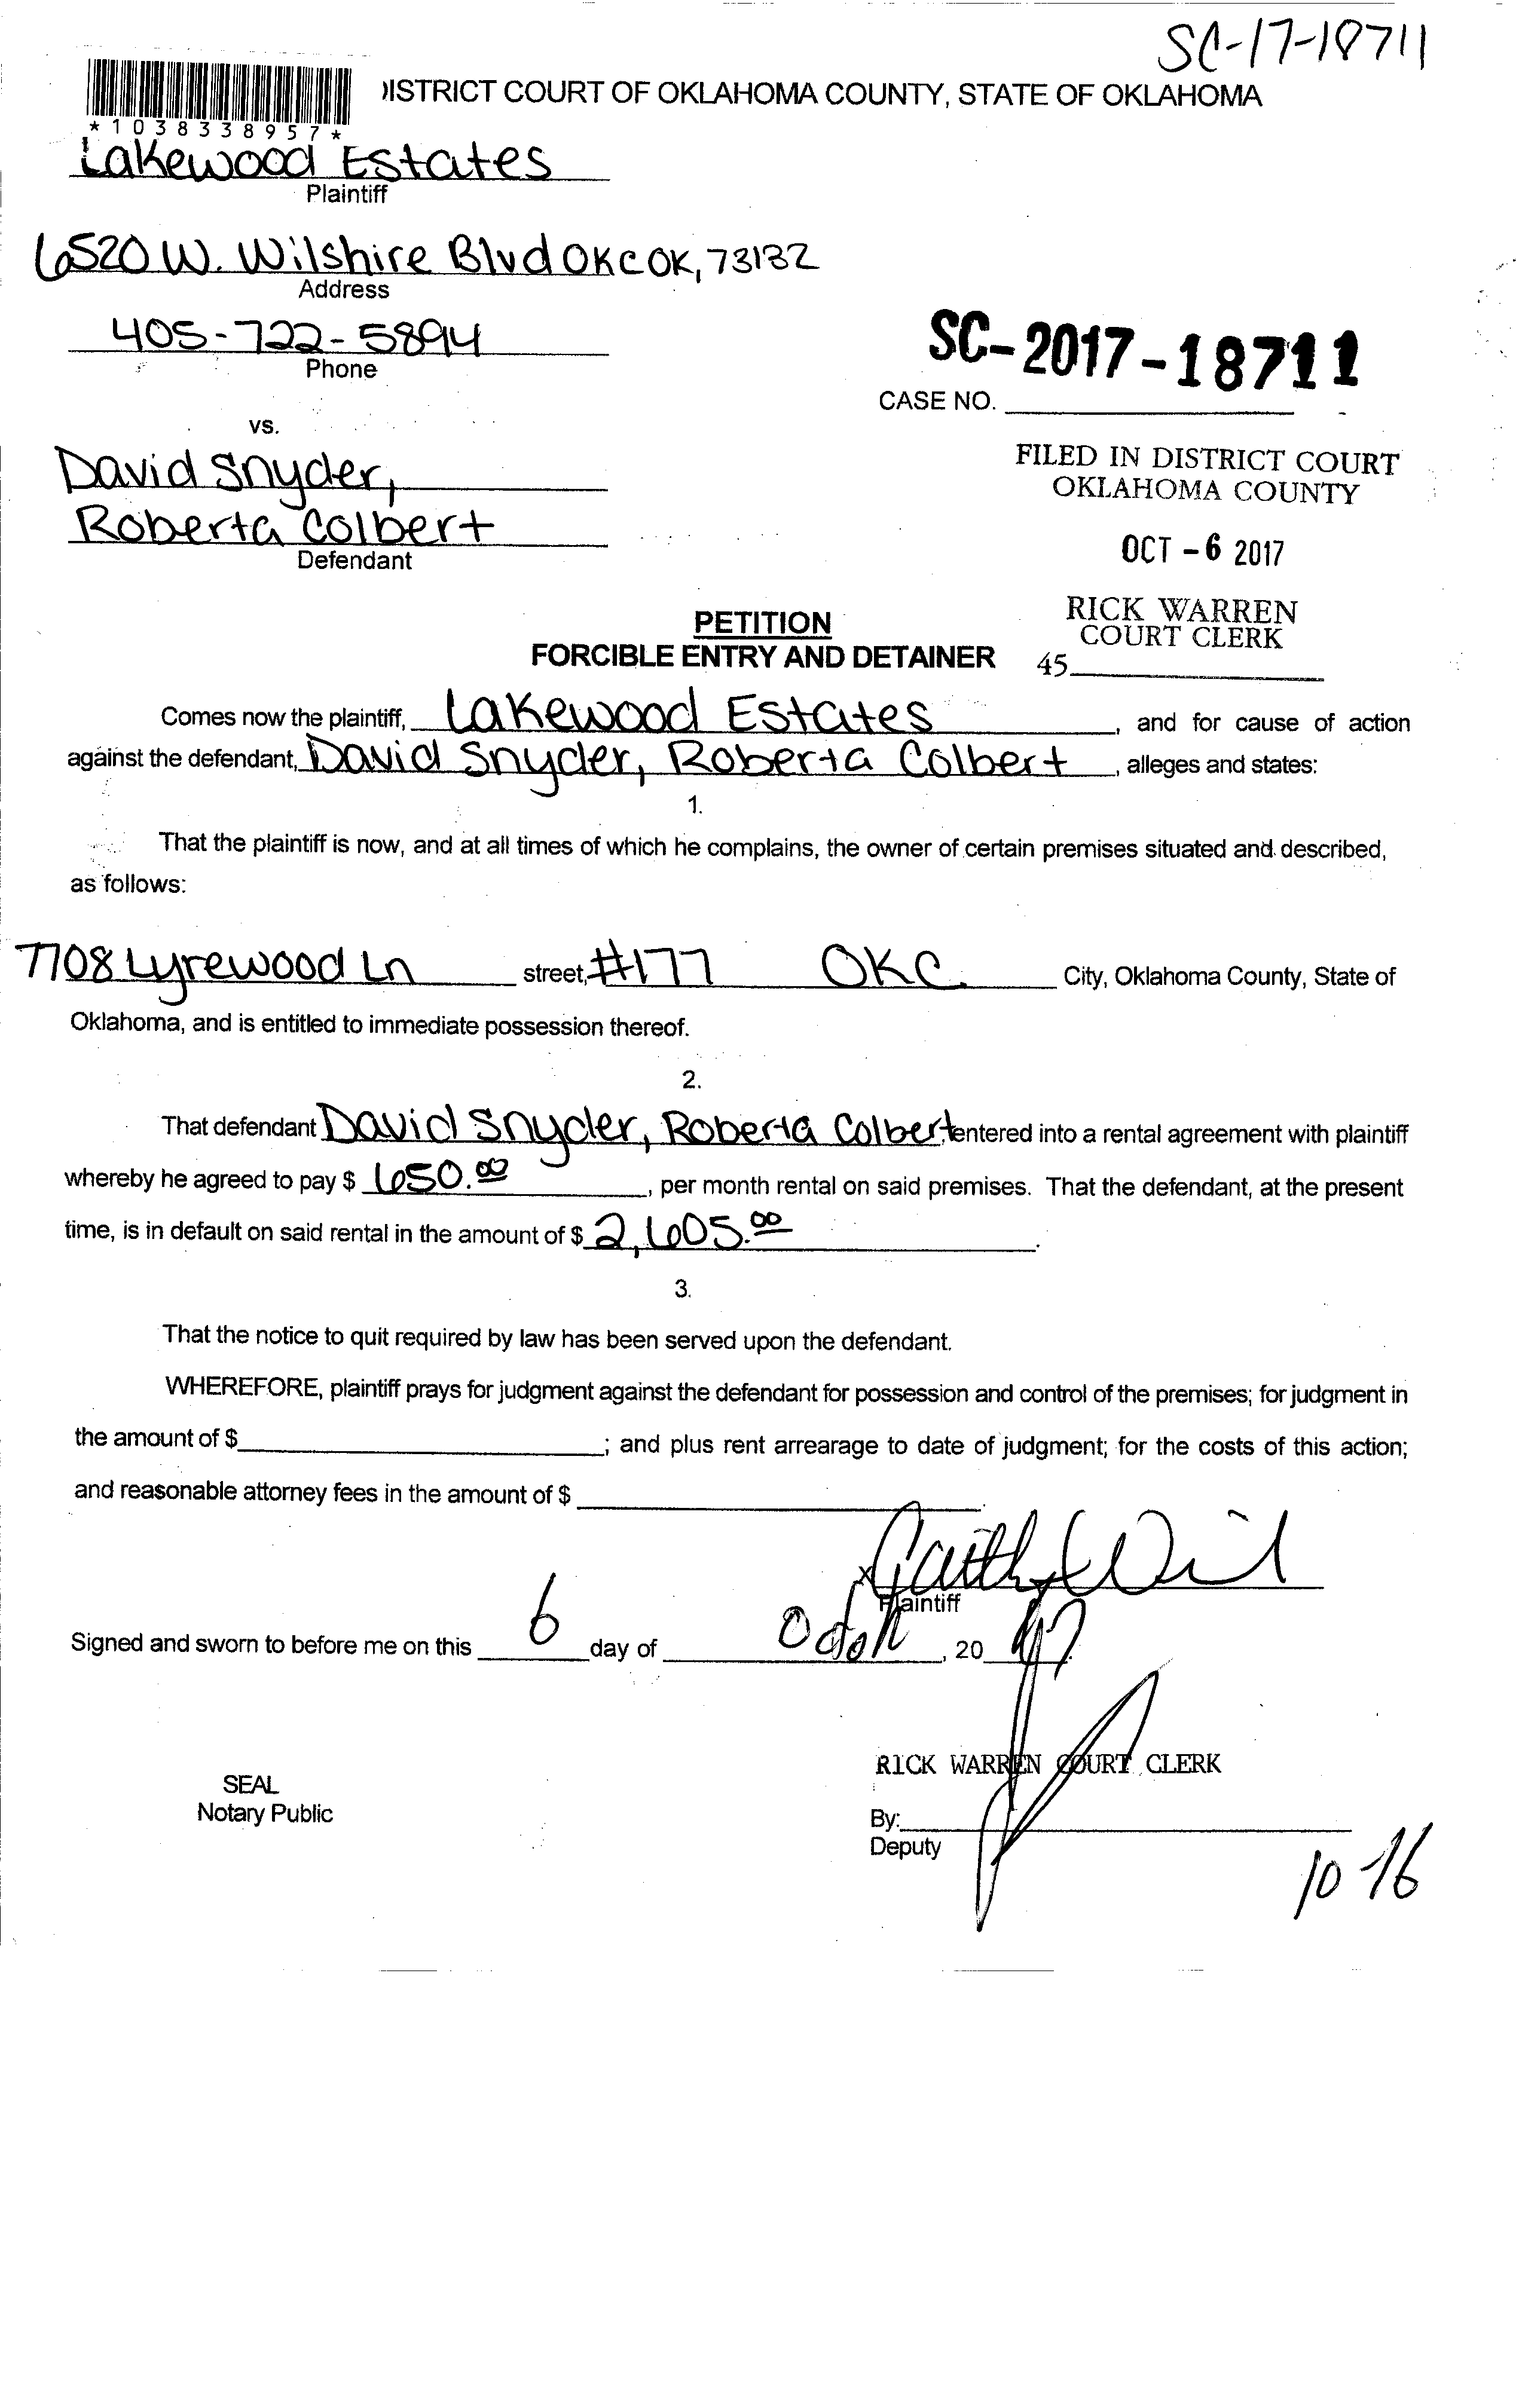 SC-17-18711
DISTRICT COURT OF OKLAHOMA COUNTY, STATE OF OKLAHOMA
*1038338957*
Lakewood Estates
Plaintiff
6520 W. Wilshire Blvd OKC OK, 73132
Address
405-722-5894
Phone
SC-2017-18711
CASE NO.
vs.
David Snyder,
Roberta Colbert
Defendant
FILED IN DISTRICT COURT
OKLAHOMA COUNTY
OCT -6 2017
RICK WARREN
COURT CLERK
45
PETITION
FORCIBLE ENTRY AND DETAINER
Comes now the plaintiff, Lakewood Estates, and for cause of action
against the defendant, David Snyder, Roberta Colbert, alleges and states:
1.
That the plaintiff is now, and at all times of which he complains, the owner of certain premises situated and described,
as follows:
7708 Lyrewood Ln street, #177 OKC City, Oklahoma County, State of
Oklahoma, and is entitled to immediate possession thereof.
2.
That defendant David Snyder, Roberta Colbert, entered into a rental agreement with plaintiff
whereby he agreed to pay $ 650.00, per month rental on said premises. That the defendant, at the present
time, is in default on said rental in the amount of $ 2,605.00.
3.
That the notice to quit required by law has been served upon the defendant.
WHEREFORE, plaintiff prays for judgment against the defendant for possession and control of the premises; for judgment in
the amount of $ ; and plus rent arrearage to date of judgment; for the costs of this action;
and reasonable attorney fees in the amount of $ .
x
Plaintiff
Signed and sworn to before me on this 6 day of , 20 17.
RICK WARREN COURT CLERK
SEAL
Notary Public
By:
Deputy
10-16